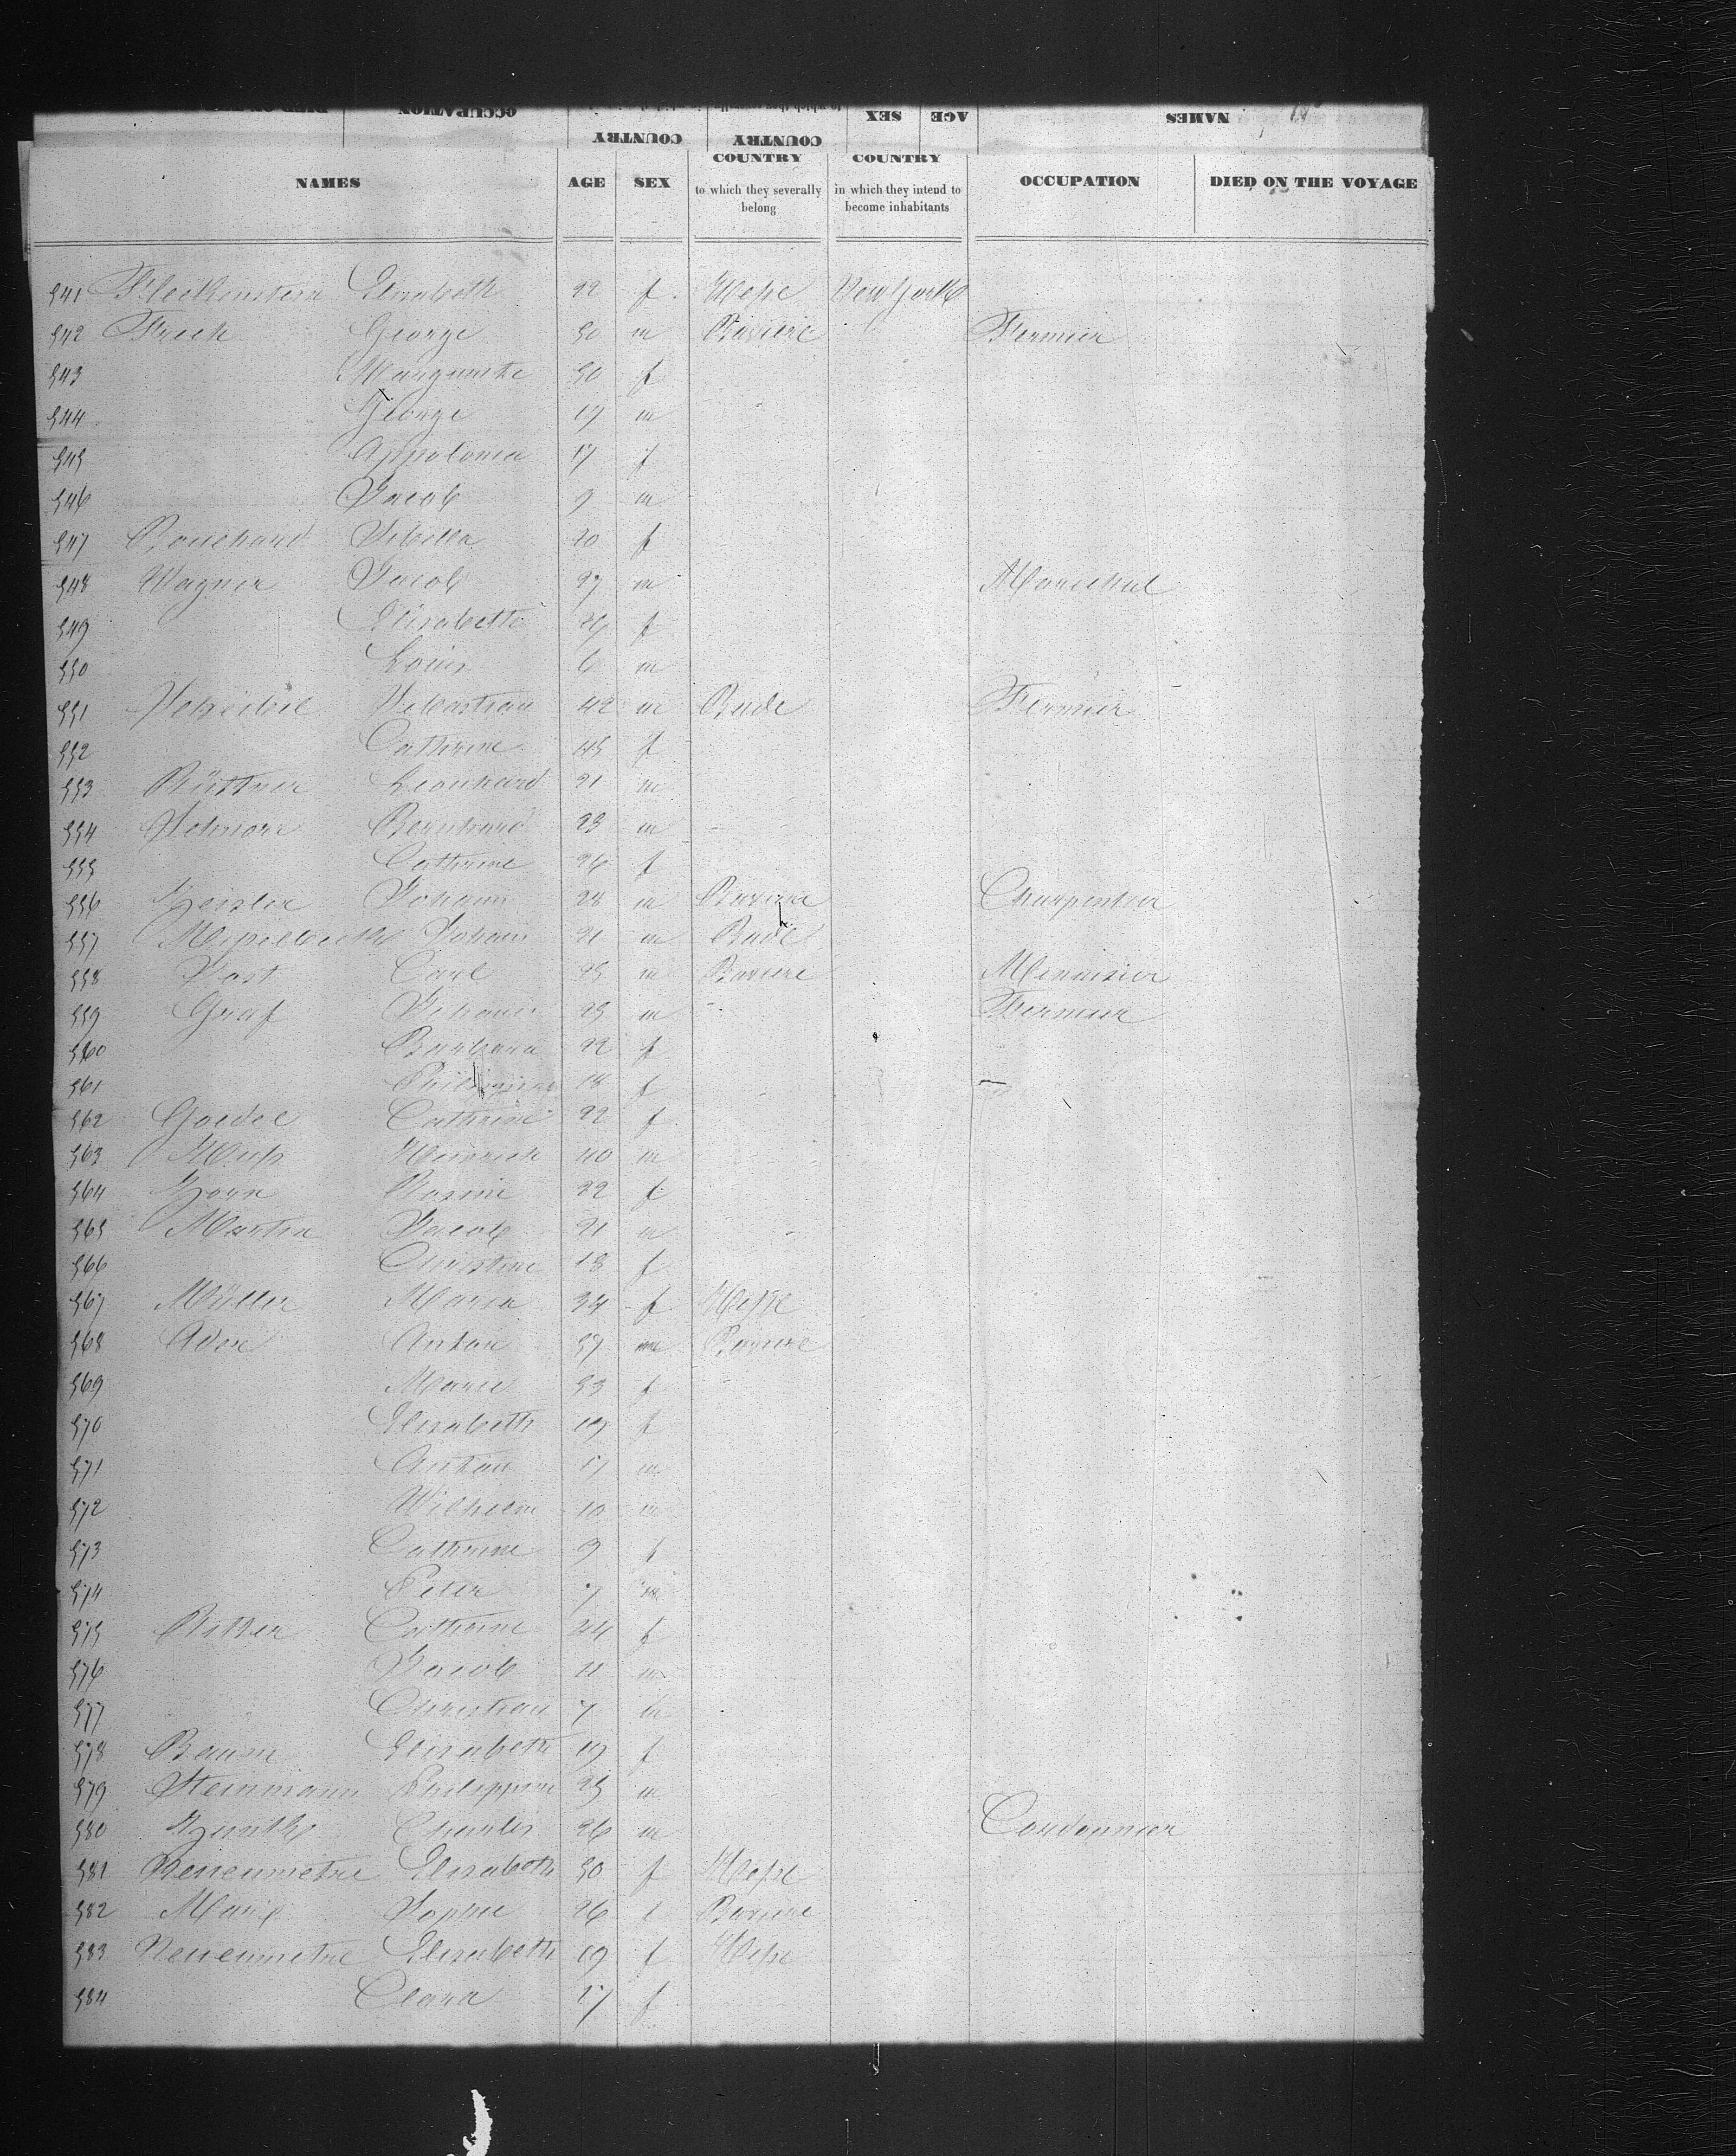 NAMES AGE SEX COUNTRY to which they severally belong COUNTRY in which they intend to become inhabitants OCCUPATION DIED ON THE VOYAGE
541 Fleckenstein Elisabeth 22 f Hesse New York
542 Freck George 50 m Baviere Fermier
543 Marguerite 50 f
544 George 19 m
545 Appolonia 17 f
546 Jacob 9 m
547 Bouchard Sibella 20 f
548 Wagner Jacob 27 m Marechal
549 Elisabeth 26 f
550 Louis 6 m
551 Sebastian 42 m Bade Fermier
552 Catherine 45 f
553 Büttner Leonhard 21 m
554 Bernhard 23 m
555 Catherine 26 f
556 Geisler Johann 28 m Baviere Charpentier
557 Johann 21 m Bade
558 Jost Carl 25 m Baviere Menuisier
559 Graf Johann 25 m Fermier
560 Barbara 22 f
561 Philippine 18 f
562 Goedel Catherine 22 f
563 Hess Heinrich 40 m
564 Zorn Rosine 22 f
565 Martin Jacob 21 m
566 Christine 18 f
567 Müller Maria 34 f Hesse
568 Ader Anton 57 m Baviere
569 Marie 53 f
570 Elisabeth 19 f
571 Anton 17 m
572 Wilhelm 10 m
573 Catherine 9 f
574 Peter 7 m
575 Ritter Catherine 44 f
576 Jacob 11 m
577 Christian 7 m
578 Baum Elisabeth 19 f
579 Steinmann Philippine 25 m
580 Charles 26 m Cordonnier
581 Elisabeth 50 f Hesse
582 Sophie 26 f Baviere
583 Elisabeth 19 f Hesse
584 Clara 17 f